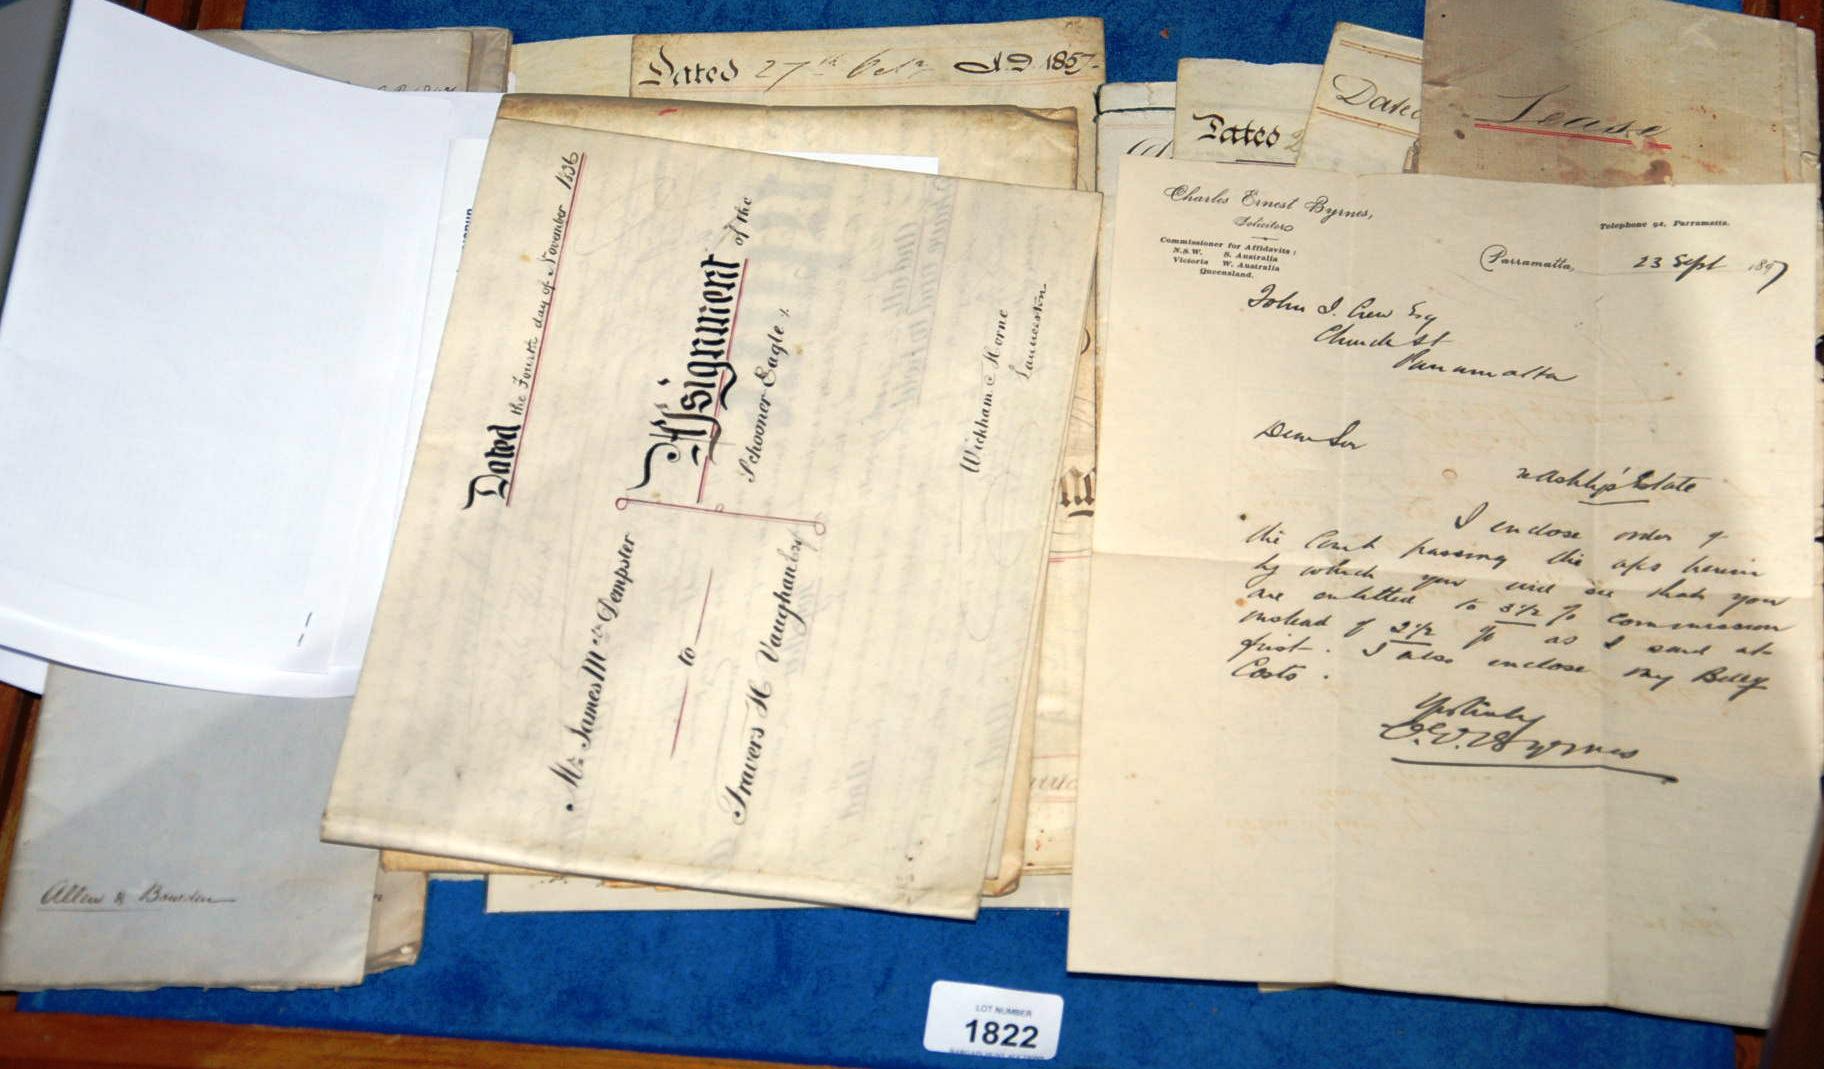 Dated 27th Octr AD 1857
Dated
Dated
Lease
Dated the Fourth day of November 1836
Assignment of the
Schooner Eagle
Mr. James McDempster
to
Travers H Vaughan Esq
Wickham & Horne
Launceston
Charles Ernest Byrnes,
Solicitor
Commissioner for Affidavits:
N.S.W. S. Australia
Victoria W. Australia
Queensland.
Telephone 92, Parramatta.
Parramatta, 23 Sept 1897
John I. Crew Esq
Church St
Parramatta
Dear Sir
Estate
I enclose order of
the Court passing the a/cs herein
by which you will see that you
are entitled to 3½ % commission
instead of 2½ % as I said at
first. I also enclose my
Costs.
Yrs truly
C.E. Byrnes
Allen & Bowden
LOT NUMBER
1822